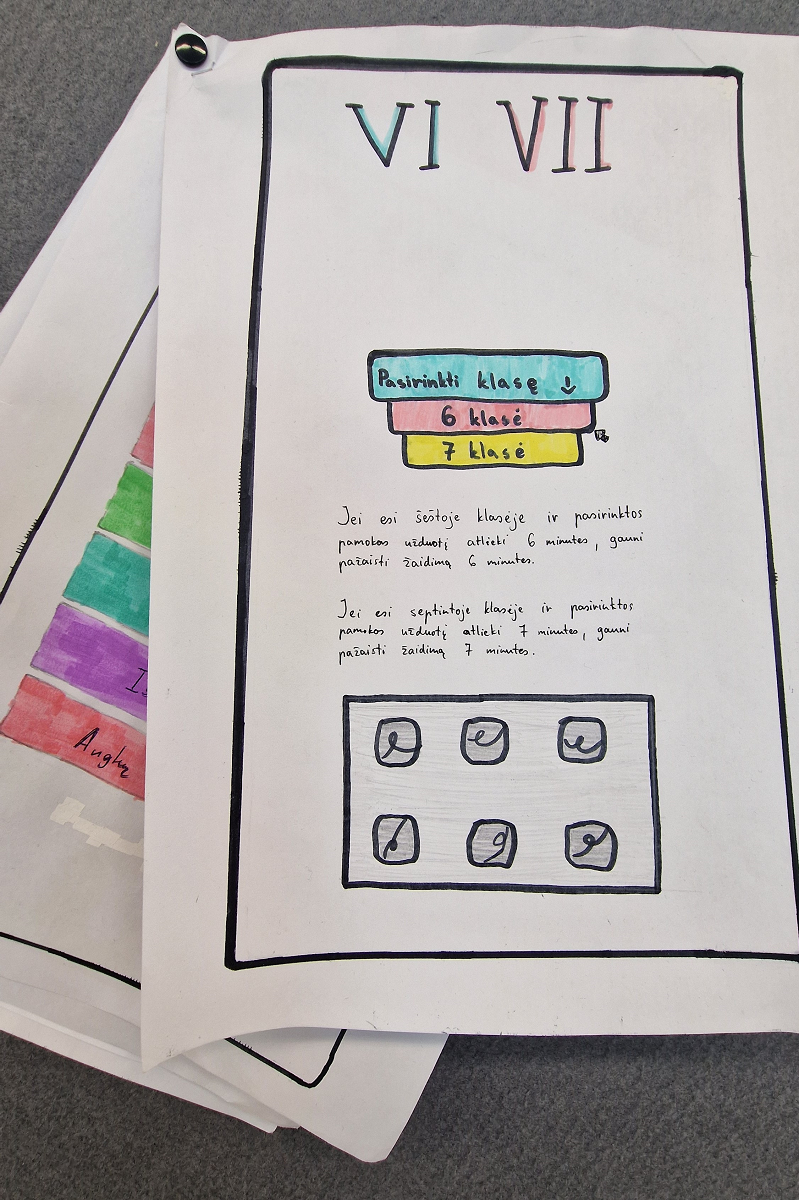 VI VII
Pasirinkti klasę ↓
6 klasė
7 klasė
Jei esi šeštoje klasėje ir pasirinktos
pamokos užduotį atlieki 6 minutes, gauni
pažaisti žaidimą 6 minutes.
Jei esi septintoje klasėje ir pasirinktos
pamokos užduotį atlieki 7 minutes, gauni
pažaisti žaidimą 7 minutes.
Anglų